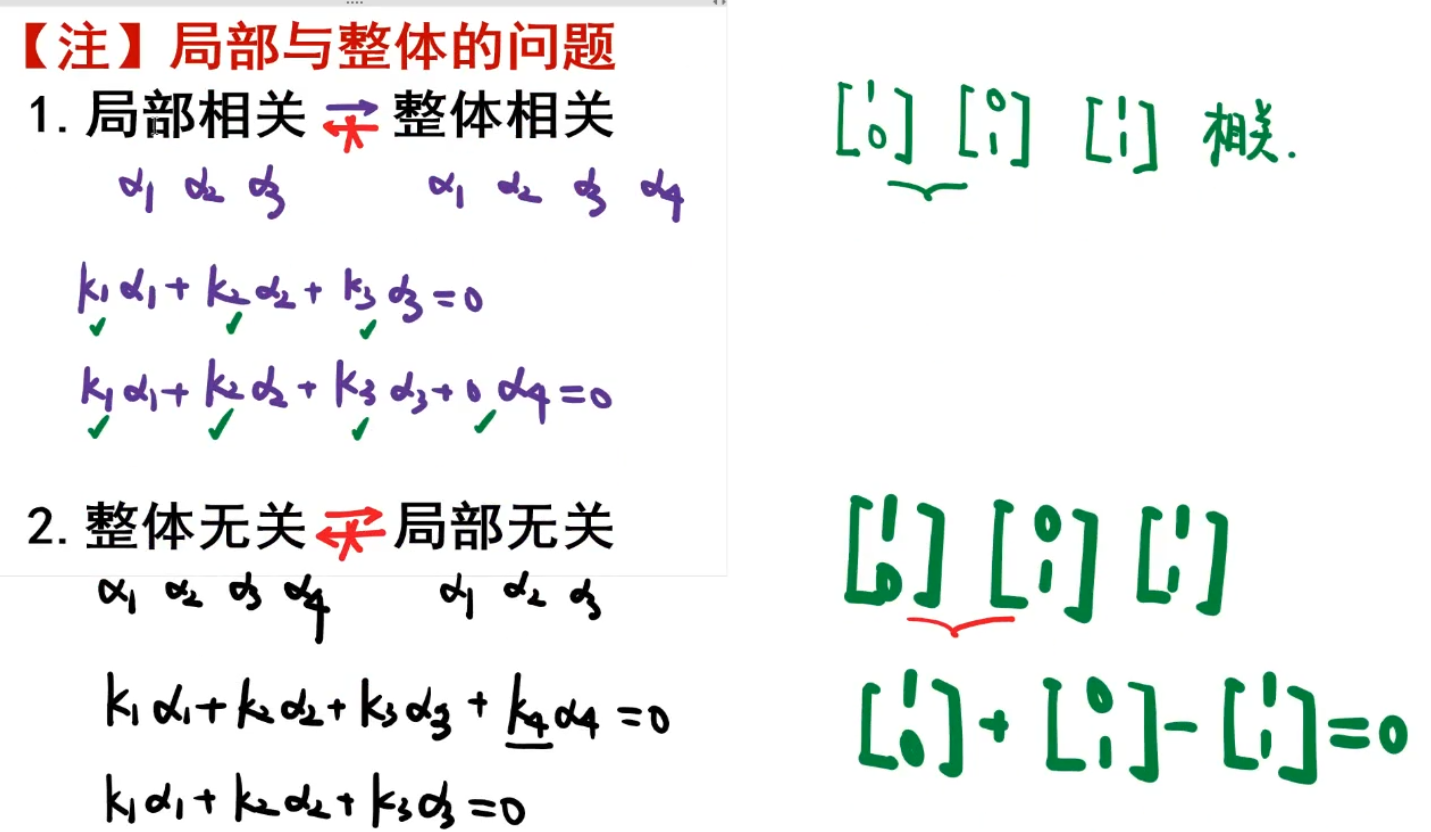 【注】局部与整体的问题
1. 局部相关 ⇌ 整体相关
α1 α2 α3 α1 α2 α3 α4
k1α1+k2α2+k3α3=0
✓ ✓ ✓
k1α1+k2α2+k3α3+0α4=0
✓ ✓ ✓ ✓
2. 整体无关 ⇌ 局部无关
α1 α2 α3 α4 α1 α2 α3
k1α1+k2α2+k3α3+k4α4=0
k1α1+k2α2+k3α3=0
[1 0] [0 1] [1 1] 相关.
[1 0] [0 1] [1 1]
[1 0]+[0 1]-[1 1]=0